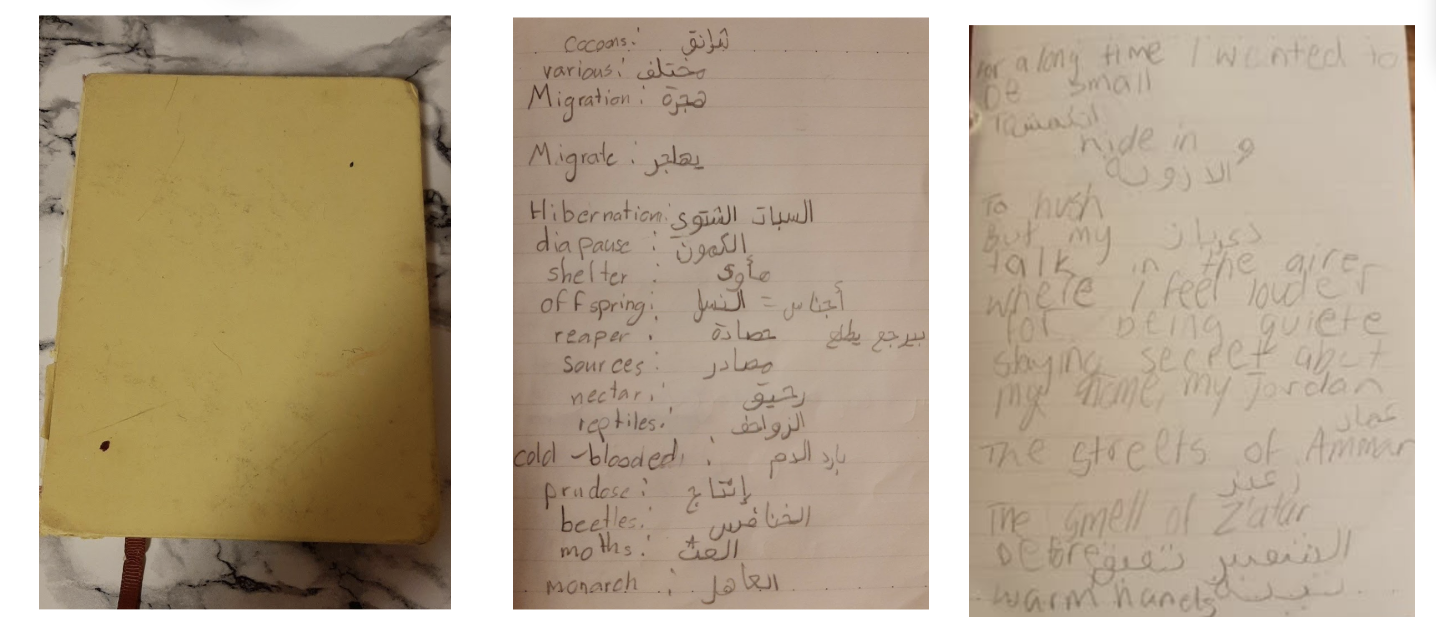 cocoons: شرانق
various: مختلف
Migration: هجرة
Migrate: يهاجر
Hibernation: السبات الشتوي
diapause: الكمون
shelter: مأوى
offspring: النسل = أجناس
reaper: حصادة بيرجع يطلع
sources: مصادر
nectar: رحيق
reptiles: الزواحف
cold-blooded: بارد الدم
prudose: إنتاج
beetles: الخنافس
moths: العث
monarch: العاهل
For a long time I wanted to
be small
To انكمش
hide in و
To hush
But my
talk in the aire
where I feel louder
for being quiete
staying secret abut
my home, my Jordan
عمان
The streets of Amman
زعتر
The smell of Zatar
Before الشمس
warm hands